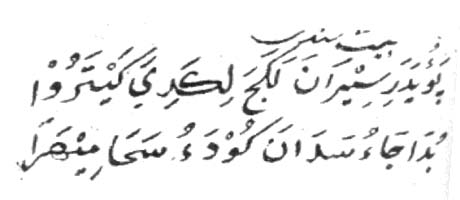 بيت
يَؤُيَدَرِسِيْرَانَ لَكَجَ لِكَدِيَ كَيْتَرُوْا
بُدَاجَاءُ سَدَانَ كُوْدَءُ سَحَا مِيْهَرَا